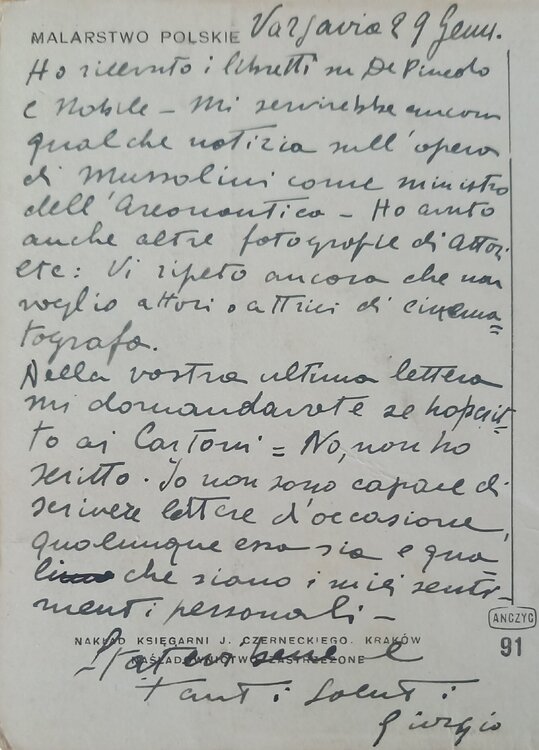 MALARSTWO POLSKIE
Varsavia 29 Genn.
Ho ricevuto i libretti su De Pinedo
e Nobile – Mi servirebbe ancora
qualche notizia sull'opera
di Mussolini come ministro
dell'Areonautica – Ho avuto
anche altre fotografie di attori
etc: Vi ripeto ancora che non
voglio attori o attrici di cinema=
tografo.
Nella vostra ultima lettera
mi domandavate se ho scrit=
to ai Cartoni = No, non ho
scritto. Io non sono capace di
scrivere lettere d'occasione,
qualunque essa sia e qua
li che siano i miei senti-
menti personali –
NAKŁAD KSIĘGARNI J. CZERNECKIEGO. KRAKÓW
NAŚLADOWNICTWO ZASTRZEŻONE
ANCZYC
91
State bene e
tanti saluti
Giorgio